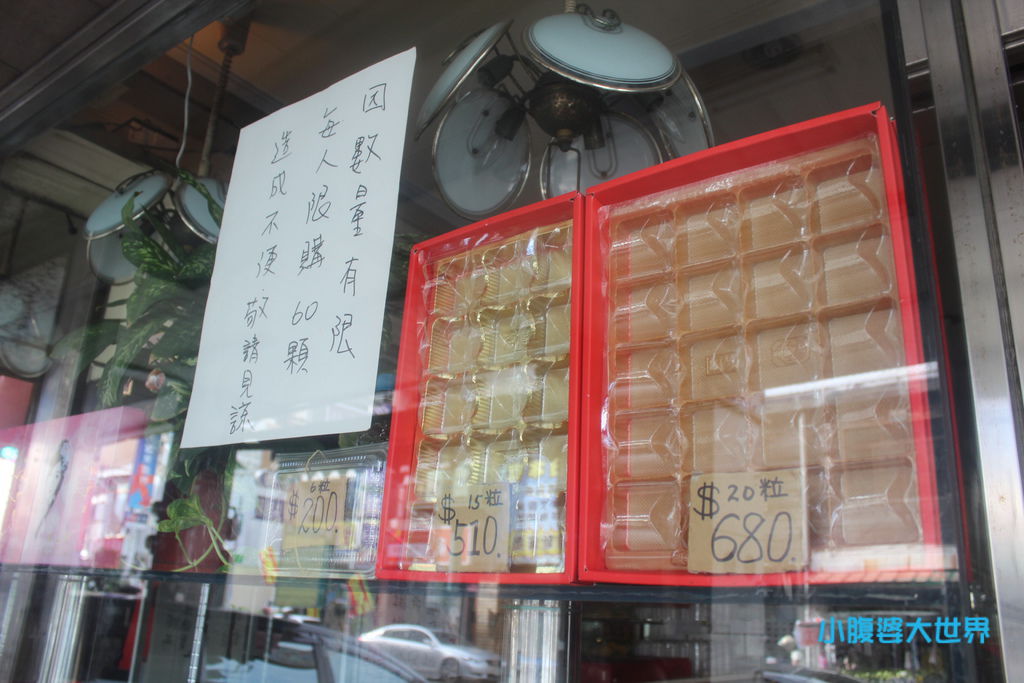 因數量有限
每人限購60顆
造成不便敬請見諒
6粒
$200.
15粒
$510.
20粒
$680.
小腹婆大世界